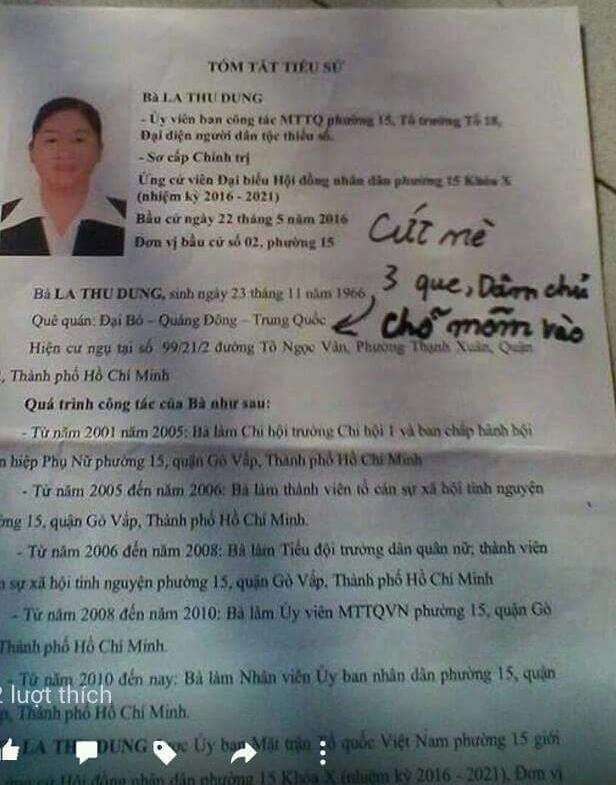 TÓM TẮT TIỂU SỬ
Bà LA THU DUNG
- Ủy viên ban công tác MTTQ phường 15, Tổ trưởng Tổ 18,
Đại diện người dân tộc thiểu số.
- Sơ cấp Chính trị
Ứng cử viên Đại biểu Hội đồng nhân dân phường 15 Khóa X
(nhiệm kỳ 2016 - 2021)
Bầu cử ngày 22 tháng 5 năm 2016
Đơn vị bầu cử số 02, phường 15
Cứt mè
3 que, Dâm chủ
chõ mõm vào
Bà LA THU DUNG, sinh ngày 23 tháng 11 năm 1966
Quê quán: Đại Bô - Quảng Đông - Trung Quốc
Hiện cư ngụ tại số 99/21/2 đường Tô Ngọc Vân, Phường Thạnh Xuân, Quận
, Thành phố Hồ Chí Minh
Quá trình công tác của Bà như sau:
- Từ năm 2001 năm 2005: Bà làm Chi hội trưởng Chi hội 1 và ban chấp hành hội
n hiệp Phụ Nữ phường 15, quận Gò Vấp, Thành phố Hồ Chí Minh
- Từ năm 2005 đến năm 2006: Bà làm thành viên tổ cán sự xã hội tình nguyện
ờng 15, quận Gò Vấp, Thành phố Hồ Chí Minh.
- Từ năm 2006 đến năm 2008: Bà làm Tiểu đội trưởng dân quân nữ; thành viên
n sự xã hội tình nguyện phường 15, quận Gò Vấp, Thành phố Hồ Chí Minh
- Từ năm 2008 đến năm 2010: Bà làm Ủy viên MTTQVN phường 15, quận Gò
Thành phố Hồ Chí Minh.
- Từ năm 2010 đến nay: Bà làm Nhân viên Ủy ban nhân dân phường 15, quận
2 lượt thích
p, Thành phố Hồ Chí Minh.
LA THU DUNG được Ủy ban Mặt trận Tổ quốc Việt Nam phường 15 giới
ứng cử Hội đồng nhân dân phường 15 Khóa X (nhiệm kỳ 2016 - 2021), Đơn vị